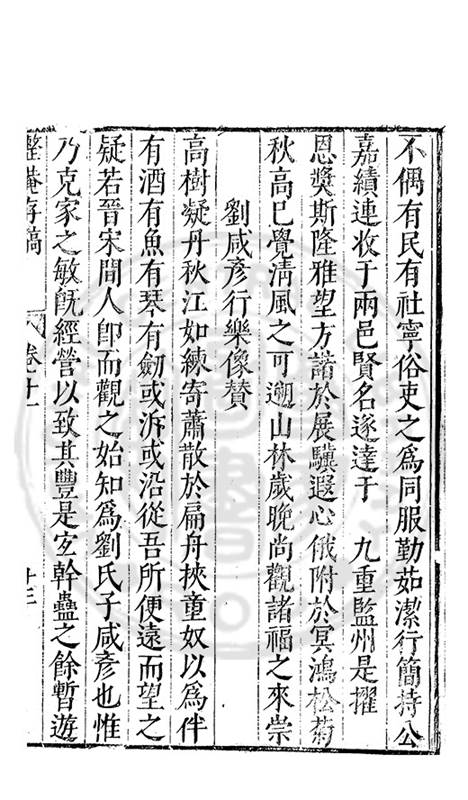 不偶有民有社寧俗吏之爲同服勤茹潔行簡持公
嘉績連收于兩邑賢名遂達于　九重監州是擢
恩獎斯隆雅望方諧於展驥遐心俄附於冥鴻松菊
秋高已覺淸風之可遡山林歲晚尚觀諸福之來崇
劉咸彥行樂像贊
高樹凝丹秋江如練寄蕭散於扁舟挾童奴以爲伴
有酒有魚有琴有劒或泝或沿從吾所便遠而望之
疑若晉宋間人卽而觀之始知爲劉氏子咸彥也惟
乃克家之敏旣經營以致其豐是宜幹蠱之餘暫遊
整菴存稿　卷十一　十三